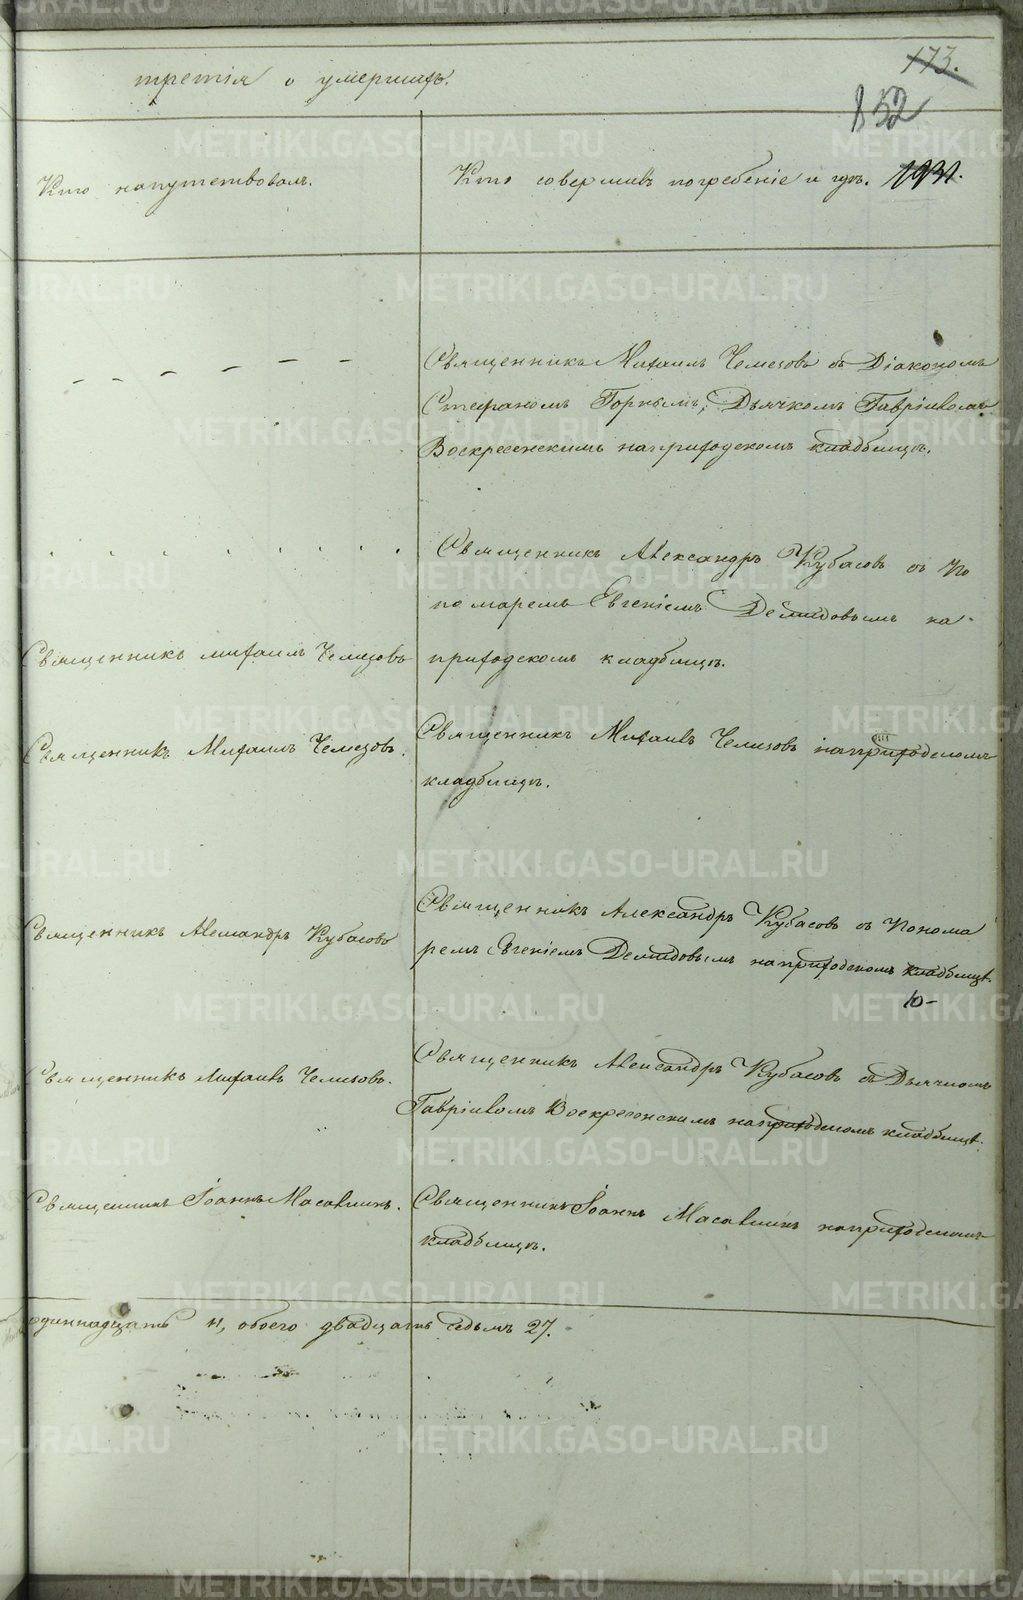 третія о умершихъ.
173.
852
Кто напутствовалъ.
Кто совершилъ погребеніе и гдѣ.
Священникъ Михаилъ Чемезовъ съ Діакономъ
Стефаномъ Горнымъ, Дьячкомъ Гавріиломъ
Воскресенскимъ наприходскомъ кладбищѣ.
Священникъ Александръ Кубасовъ съ По
номаремъ Евгеніемъ Демидовымъ на
приходскомъ кладбищѣ.
Священникъ михаилъ Чемезовъ
Священникъ Михаилъ Чемезовъ.
Священникъ Михаилъ Чемезовъ наприходскомъ
кладбищѣ.
Священникъ Александръ Кубасовъ
Священникъ Александръ Кубасовъ съ Понома
ремъ Евгеніемъ Демидовымъ наприходскомъ кладбищѣ.
10-
Священникъ Михаилъ Чемезовъ.
Священникъ Александръ Кубасовъ съ Дьячкомъ
Гавріиломъ Воскресенскимъ наприходскомъ кладбищѣ.
Священникъ Іоаннъ Масалкинъ.
Священникъ Іоаннъ Масалкинъ наприходскомъ
кладбищѣ.
одиннадцать 11, обоего двадцать седьмъ 27.
METRIKI.GASO-URAL.RU